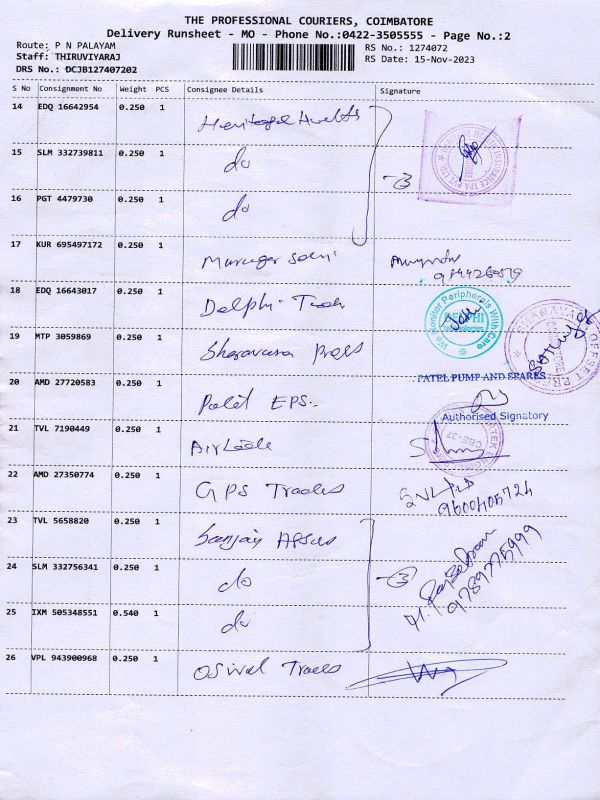 THE PROFESSIONAL COURIERS, COIMBATORE
Delivery Runsheet - MO - Phone No.:0422-3505555 - Page No.:2
Route: P N PALAYAM
Staff: THIRUVIYARAJ
DRS No.: DCJB127407202
RS No.: 1274072
RS Date: 15-Nov-2023
S No Consignment No Weight PCS Consignee Details Signature
14 EDQ 16642954 0.250 1
15 SLM 332739811 0.250 1 do
16 PGT 4479730 0.250 1 do
-3
17 KUR 695497172 0.250 1
18 EDQ 16643017 0.250 1 Delphi Tech
We Monitor Peripherals With Care
DELPHI
19 MTP 3059869 0.250 1 Sharavana Press
20 AMD 27720583 0.250 1 Patel EPS..
PATEL PUMP AND SPARES
Authorised Signatory
21 TVL 7190449 0.250 1
22 AMD 27350774 0.250 1 GPS Trades
9600405724
23 TVL 5658820 0.250 1 Sanjay
24 SLM 332756341 0.250 1 do
-3
9789775999
25 IXM 505348551 0.540 1 do
26 VPL 943900968 0.250 1 Oswal Trades